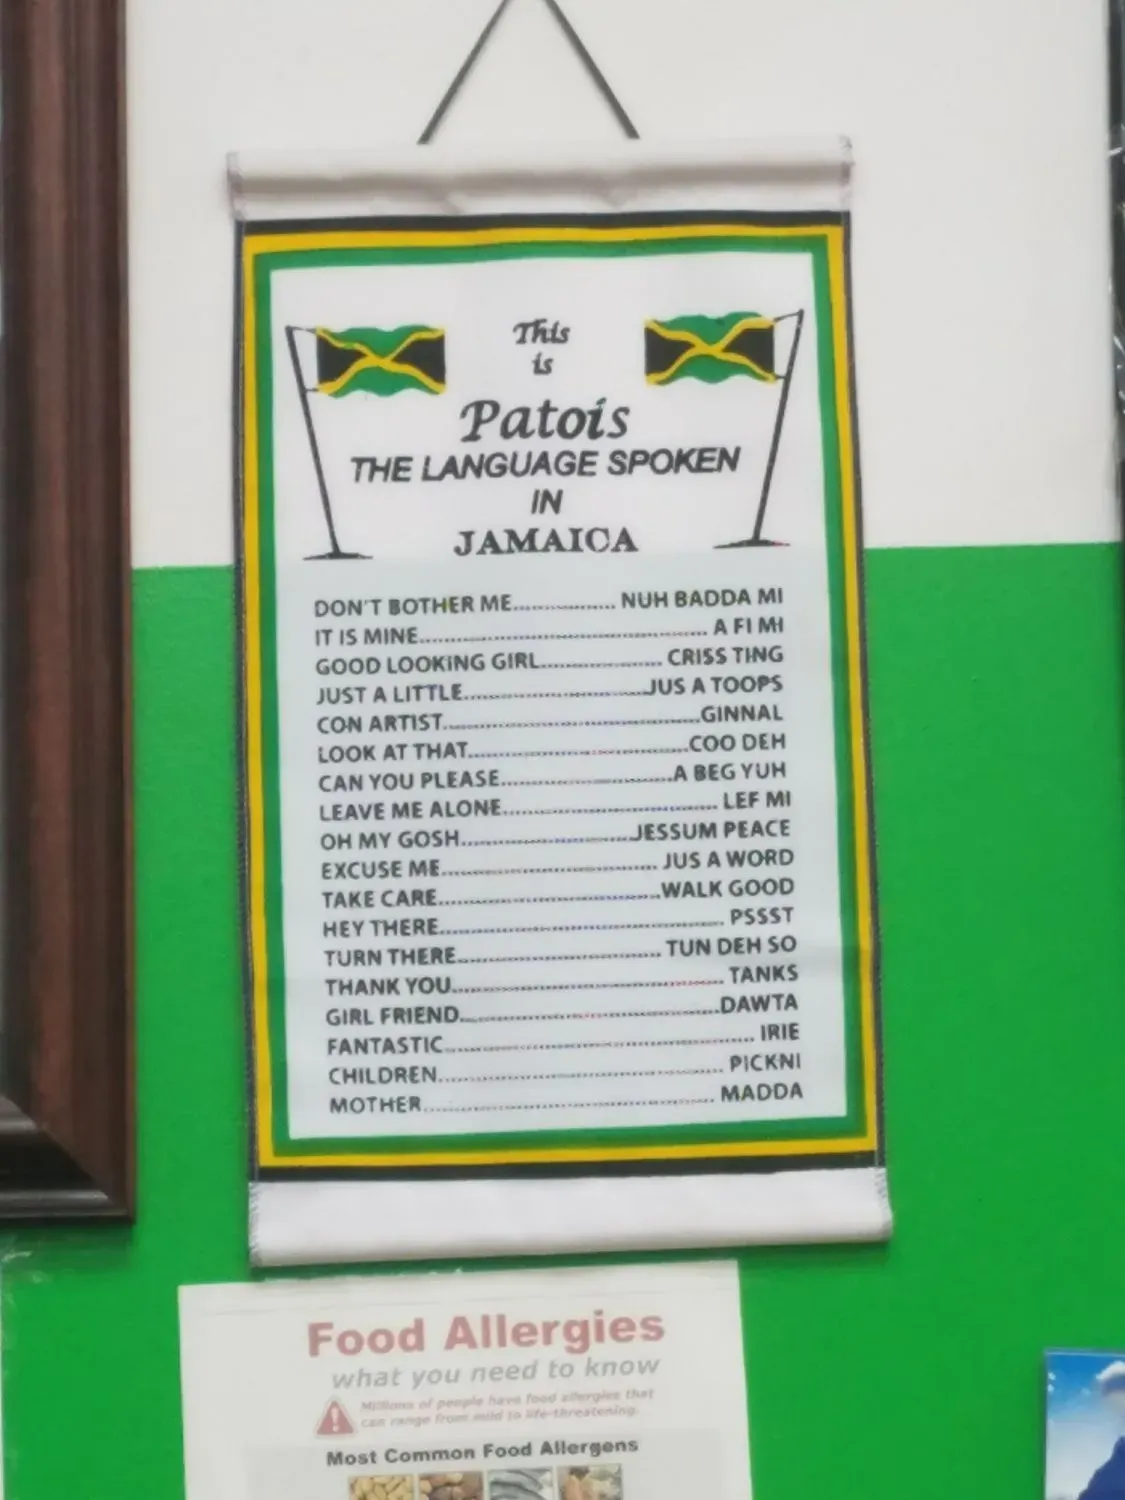 This
is
Patois
THE LANGUAGE SPOKEN
IN
JAMAICA
DON'T BOTHER ME................ NUH BADDA MI
IT IS MINE............................................. A FI MI
GOOD LOOKING GIRL................... CRISS TING
JUST A LITTLE.............................JUS A TOOPS
CON ARTIST........................................GINNAL
LOOK AT THAT..................................COO DEH
CAN YOU PLEASE...........................A BEG YUH
LEAVE ME ALONE.................................. LEF MI
OH MY GOSH...........................JESSUM PEACE
EXCUSE ME.................................. JUS A WORD
TAKE CARE...................................WALK GOOD
HEY THERE............................................. PSSST
TURN THERE................................ TUN DEH SO
THANK YOU........................................... TANKS
GIRL FRIEND.........................................DAWTA
FANTASTIC................................................. IRIE
CHILDREN............................................. PICKNI
MOTHER.............................................. MADDA
Food Allergies
what you need to know
Millions of people have food allergies that
can range from mild to life-threatening.
Most Common Food Allergens